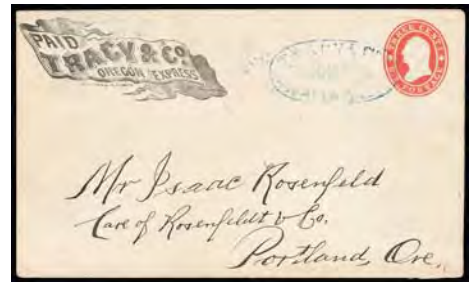 PAID
TRACY & CO.
OREGON EXPRESS
TRACY & CO
THREE CENTS
U.S. POSTAGE
Mr Isaac Rosenfeld
Care of Rosenfeldt & Co.
Portland, Ore.